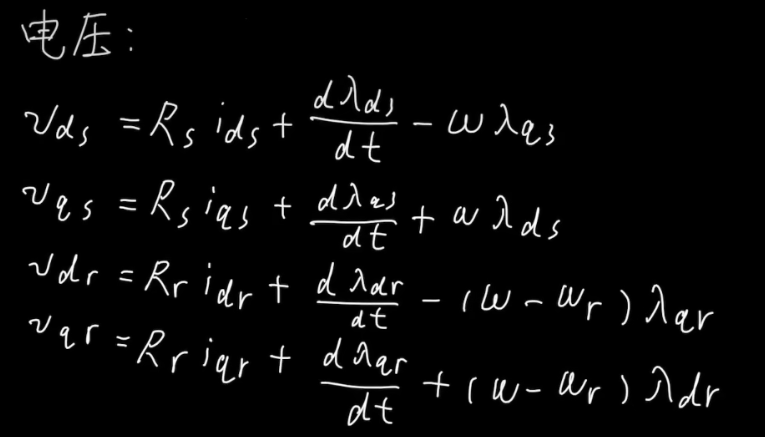 电压:
v_ds = R_s i_ds + dλ_ds/dt - ωλ_qs
v_qs = R_s i_qs + dλ_qs/dt + ωλ_ds
v_dr = R_r i_dr + dλ_dr/dt - (ω - ω_r) λ_qr
v_qr = R_r i_qr + dλ_qr/dt + (ω - ω_r) λ_dr